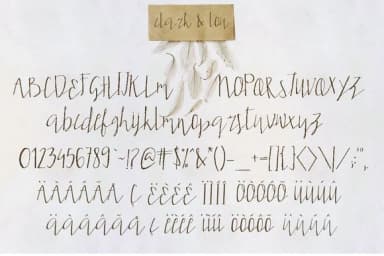 cla-zh & lou
ABCDEFGHIJKLM NOPQRSTUVWXYZ
abcdefghijklmnopqrstuvwxyz
0123456789`~!?@#$%^&*()-_+=[]{}<>\|/;:",
ÄÀÁÂÃÅ Ç ËÈÉÊ ÏÌÍÎ ÖÒÓÔÕ ÜÙÚÛ
äàáâãå ç ëèéê ïìíî öòóôõ üùúû